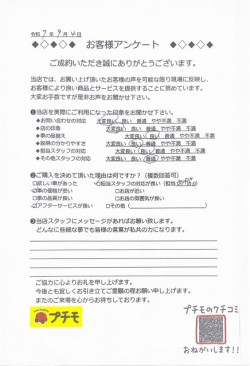 令和 7 年 9 月 日
◆◇◆◇◆ お客様アンケート ◆◇◆◇◆
ご成約いただき誠にありがとうございます。
当店では、お買い上げ頂いたお客様の声を可能な限り現場に反映し、
お客様により良い商品とサービスを提供することに努めています。
大変お手数ですが是非お声をお聞かせ下さい。
❶当店を実際にご利用になった印象をお聞かせ下さい。
◆お問い合わせの対応 大変良い 良い 普通 やや不満 不満
◆店の印象 大変良い 良い 普通 やや不満 不満
◆車の品揃え 大変良い 良い 普通 やや不満 不満
◆説明の分かりやすさ 大変良い 良い 普通 やや不満 不満
◆担当スタッフの対応 大変良い 良い 普通 やや不満 不満
◆その他スタッフの対応 大変良い 良い 普通 やや不満 不満
❷ご購入を決めて頂いた理由は何ですか？（複数回答可）
□欲しい車があった □担当スタッフの対応が良い（担当
□車の価格が安い □お店が近い
□車の品質が良い □お店が
□アフターサービスが良い □その他（ ）
❸当店スタッフにメッセージがあればお願い致します。
どんなに些細な事でも皆様の言葉が私共の力になります。
ご協力に心よりお礼を申し上げます。
今後とも宜しくお引き立てご愛顧の程お願い申し上げます。
またのご来場を心からお待ちしております。
プチモ
プチモのクチコミ
おねがいします!!